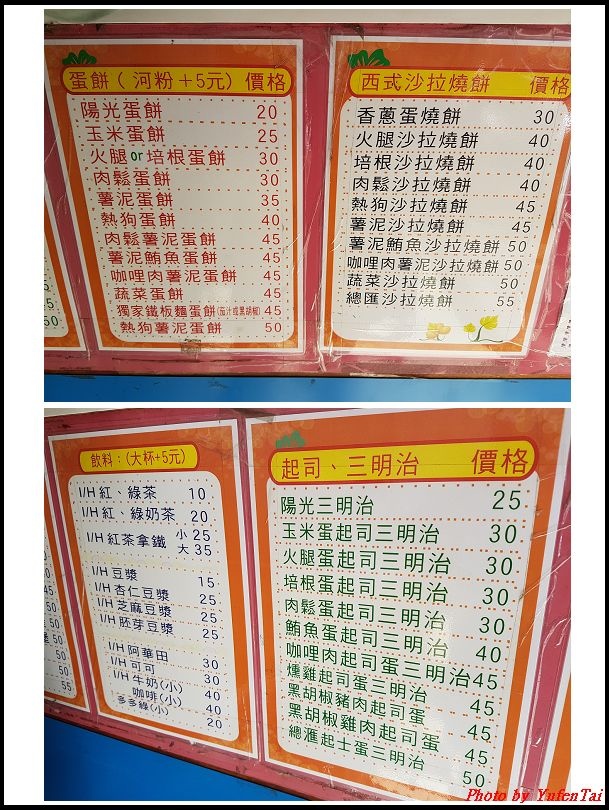 蛋餅（河粉＋5元）價格
陽光蛋餅 20
玉米蛋餅 25
火腿or培根蛋餅 30
肉鬆蛋餅 30
薯泥蛋餅 35
熱狗蛋餅 40
肉鬆薯泥蛋餅 45
薯泥鮪魚蛋餅 45
咖哩肉薯泥蛋餅 45
蔬菜蛋餅 45
獨家鐵板麵蛋餅(茄汁或黑胡椒) 45
熱狗薯泥蛋餅 50
西式沙拉燒餅 價格
香蔥蛋燒餅 30
火腿沙拉燒餅 40
培根沙拉燒餅 40
肉鬆沙拉燒餅 40
熱狗沙拉燒餅 45
薯泥沙拉燒餅 45
薯泥鮪魚沙拉燒餅 50
咖哩肉薯泥沙拉燒餅 50
蔬菜沙拉燒餅 50
總匯沙拉燒餅 55
飲料：(大杯+5元)
I/H 紅、綠茶 10
I/H 紅、綠奶茶 20
I/H 紅茶拿鐵 小 25
大 35
I/H 豆漿 15
I/H 杏仁豆漿 25
I/H 芝麻豆漿 25
I/H 胚芽豆漿 25
I/H 阿華田 30
I/H 可可 30
I/H 牛奶(小) 40
咖啡(小) 40
多多綠(小) 20
起司、三明治 價格
陽光三明治 25
玉米蛋起司三明治 30
火腿蛋起司三明治 30
培根蛋起司三明治 30
肉鬆蛋起司三明治 30
鮪魚蛋起司三明治 40
咖哩肉起司蛋三明治 45
燻雞起司蛋三明治 45
黑胡椒豬肉起司蛋 45
黑胡椒雞肉起司蛋 45
總滙起士蛋三明治 50
50
50
50
50
55
Photo by YufenTai